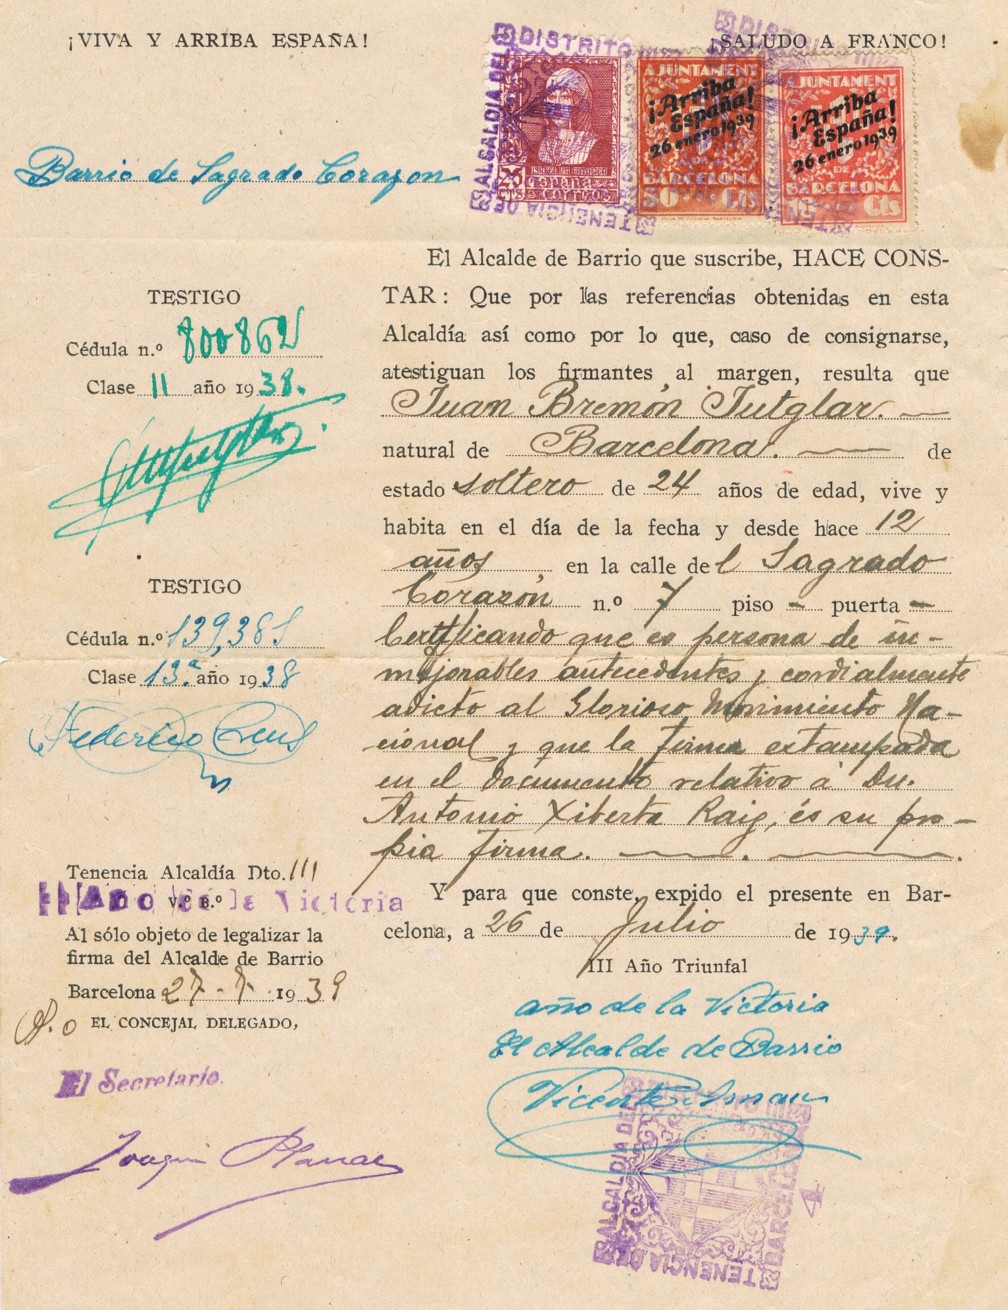 ¡VIVA Y ARRIBA ESPAÑA!
¡SALUDO A FRANCO!
ALCALDIA DEL DISTRITO
TENENCIA DE
25 CTS
ESPAÑA
CORREOS
AJUNTAMENT
¡Arriba
España!
26 enero 1939
DE
BARCELONA
50 Cts
AJUNTAMENT
¡Arriba
España!
26 enero 1939
DE
BARCELONA
10 Cts
Barrio de Sagrado Corazon
El Alcalde de Barrio que suscribe, HACE CONS-
TAR: Que por las referencias obtenidas en esta
Alcaldía así como por lo que, caso de consignarse,
atestiguan los firmantes al margen, resulta que
Juan Bremón Jutglar.
natural de Barcelona. de
estado soltero de 24 años de edad, vive y
habita en el día de la fecha y desde hace 12
años, en la calle del Sagrado
Corazón n.º 7 piso - puerta -
Certificando que es persona de in-
mejorables antecedentes y cordialmente
adicto al Glorioso Movimiento Na-
cional y que la firma estampada
en el documento relativo á Dn.
Antonio Xiberta Raig, és su pro-
pia firma.
Y para que conste, expido el presente en Bar-
celona, a 26 de Julio de 1939.
III Año Triunfal
año de la Victoria
El Alcalde de Barrio
Vicente
TESTIGO
Cédula n.º 800862
Clase 11 año 1938.
TESTIGO
Cédula n.º 139,381
Clase 13ª año 1938
Federico Creus
Tenencia Alcaldía Dto. III
V.º B.º
Año de la Victoria
Al sólo objeto de legalizar la
firma del Alcalde de Barrio
Barcelona 27-7-1939
P.o EL CONCEJAL DELEGADO,
El Secretario.
Joaquin Planas
ALCALDIA DEL DISTRITO III
BARCELONA
TENENCIA DE
4